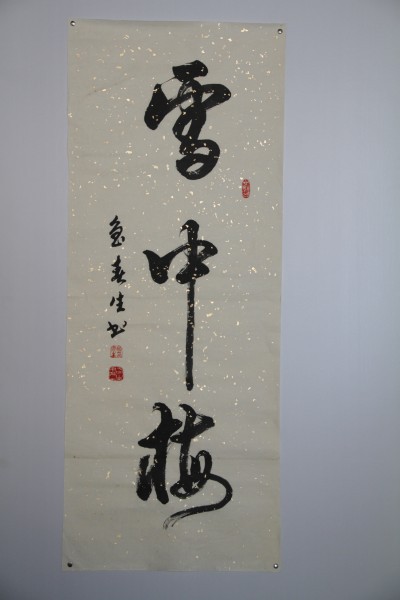 雪中梅
鱼春生书